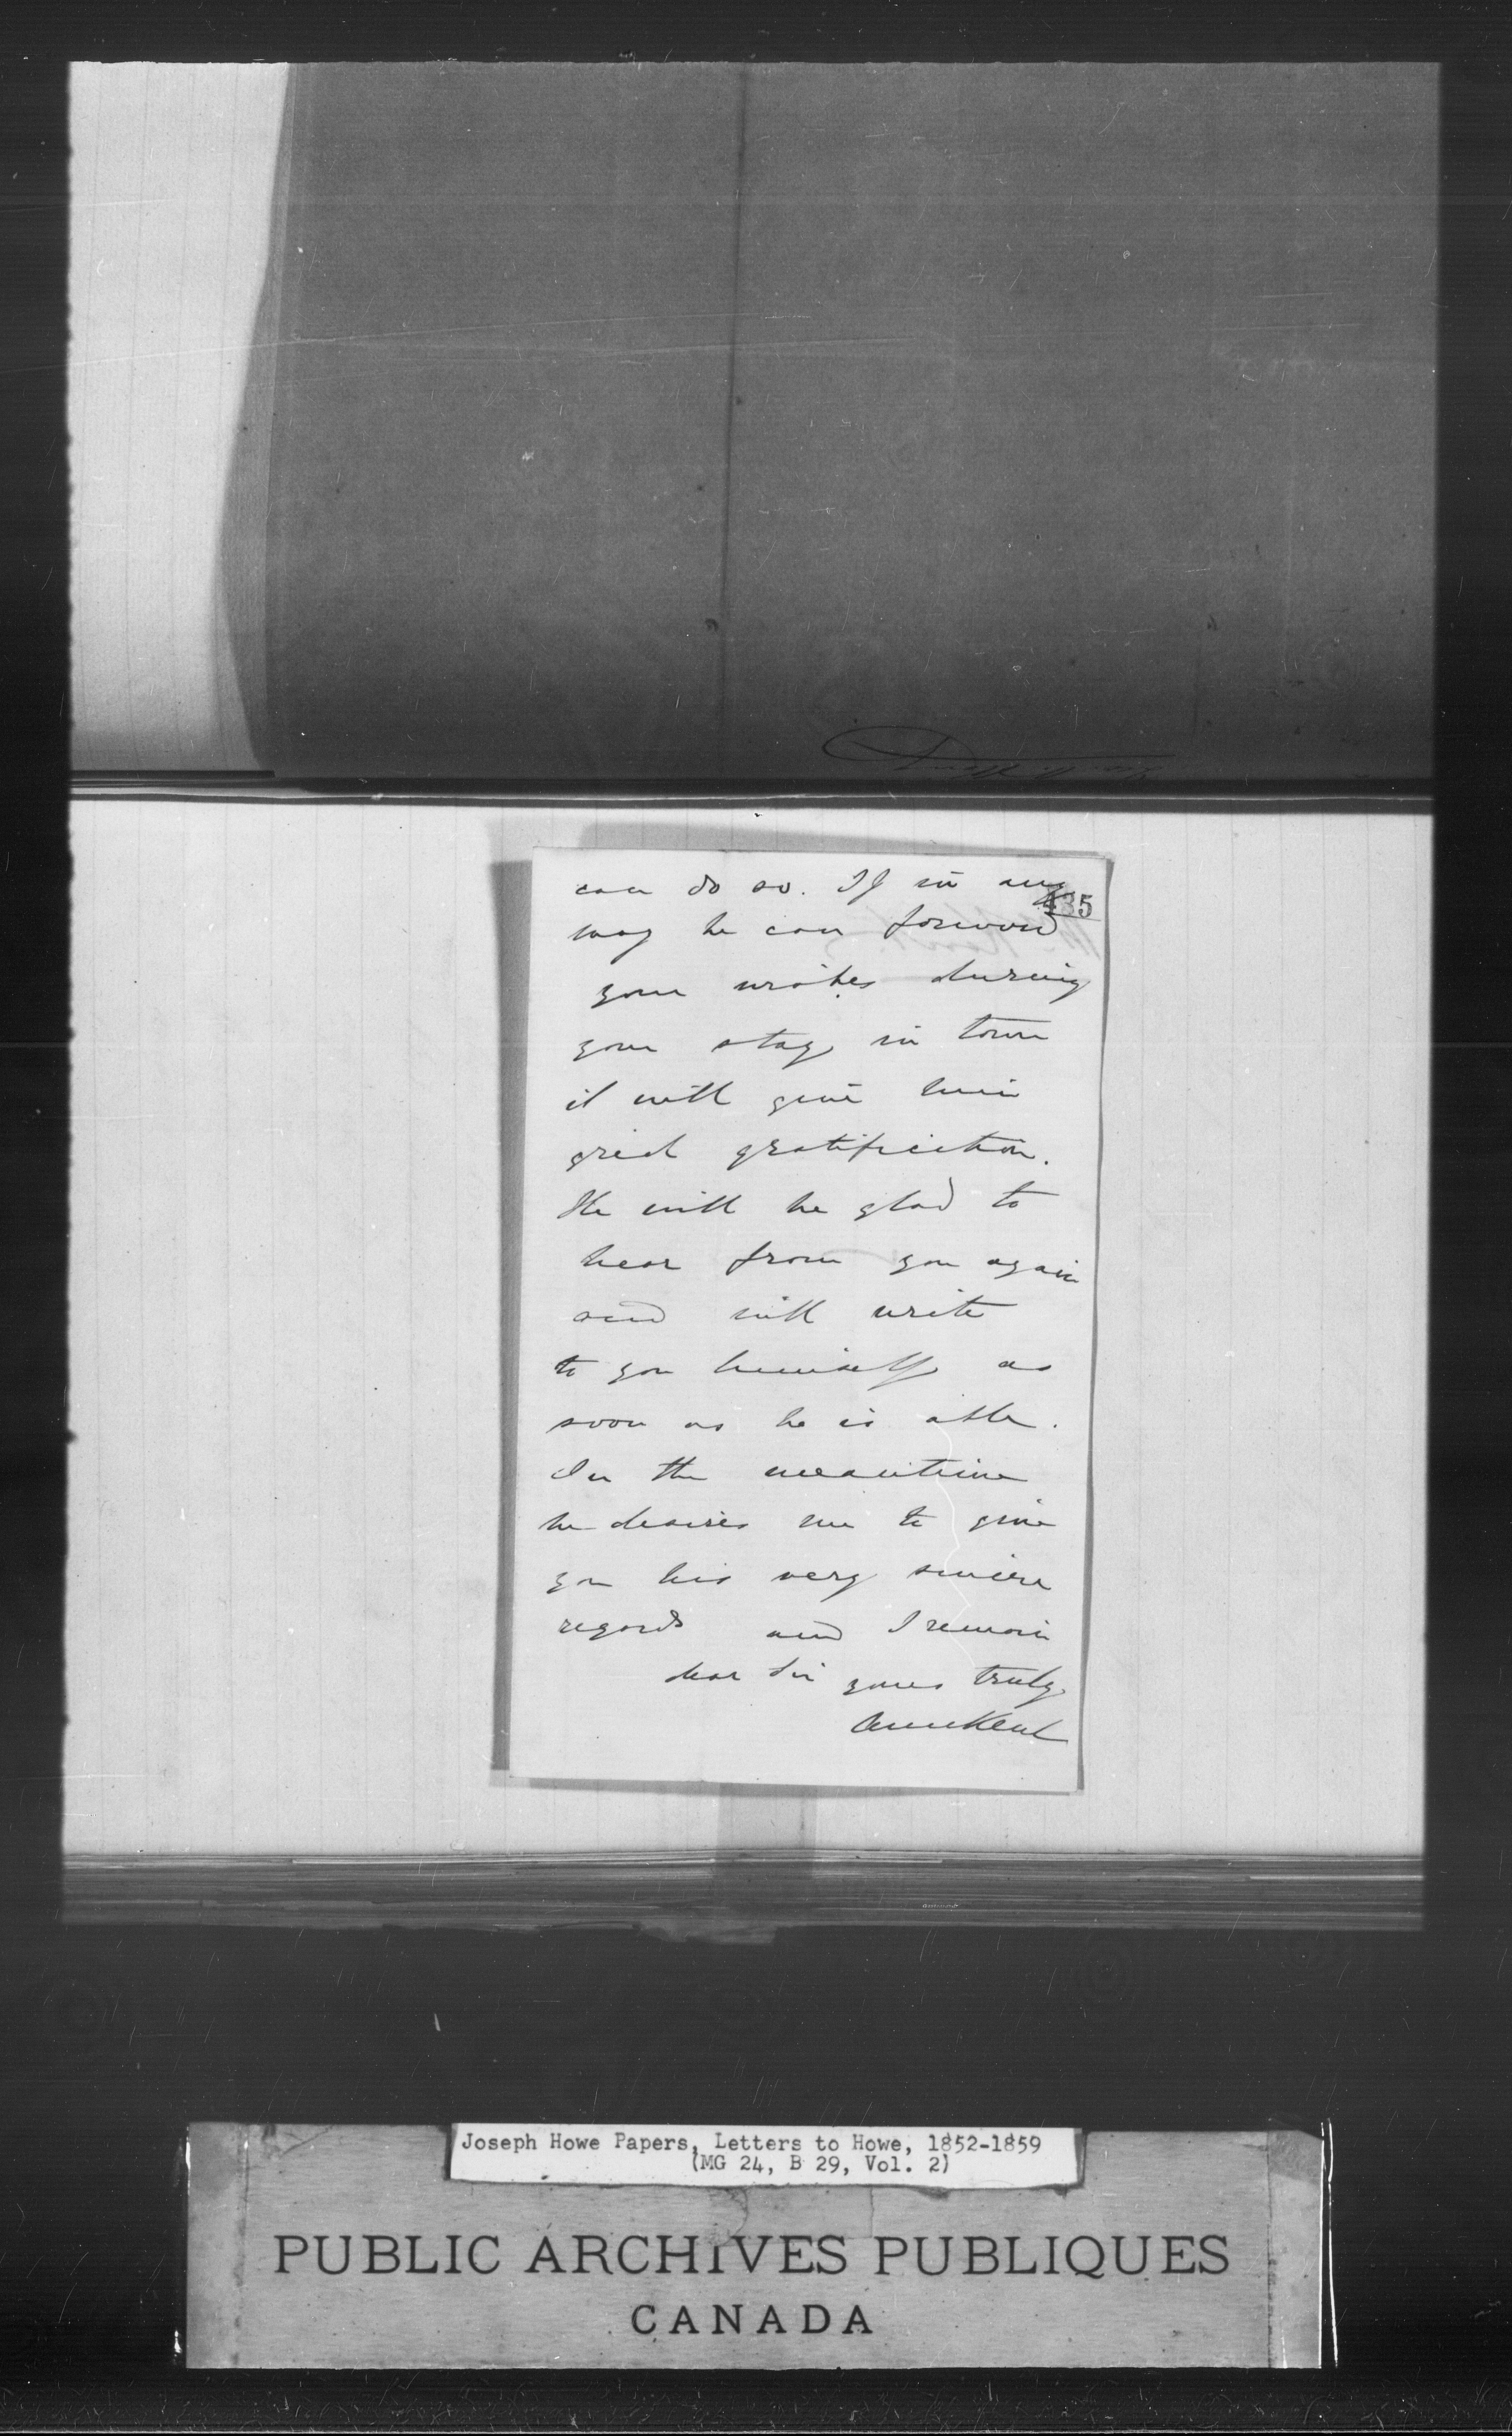 can do so. If in any
435
way he can forward
your wishes during
your stay in town
it will give him
great gratification.
He will be glad to
hear from you again
and will write
to you himself as
soon as he is able.
In the meantime
he desires me to give
you his very sincere
regards and I remain
dear Sir yours truly
Anne Kent
Joseph Howe Papers, Letters to Howe, 1852-1859
(MG 24, B 29, Vol. 2)
PUBLIC ARCHIVES PUBLIQUES
CANADA